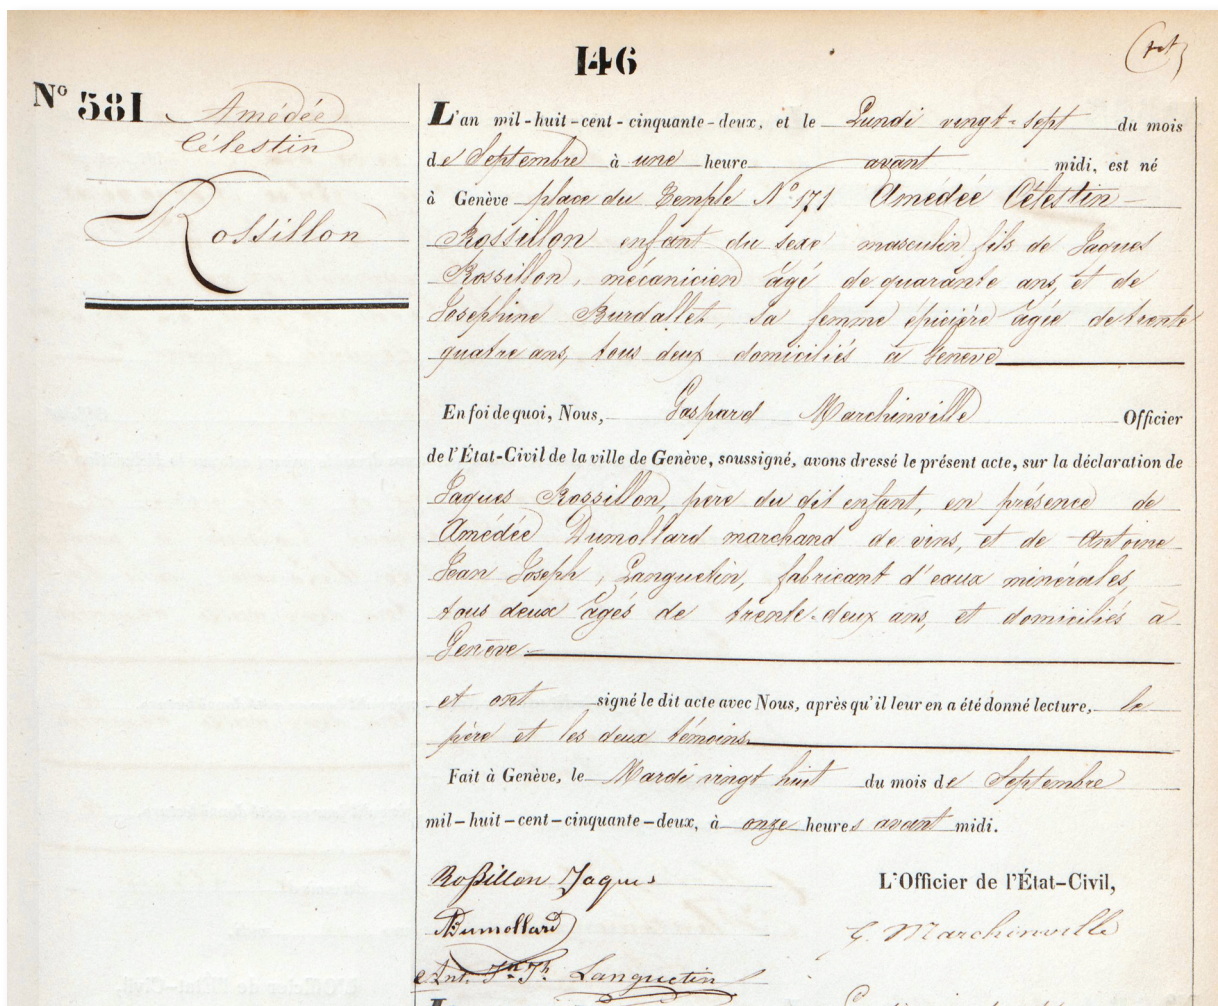 146
Nº 581 Amédée
Célestin
Rossillon
L'an mil-huit-cent-cinquante-deux, et le Lundi vingt-sept du mois
de Septembre à une heure avant midi, est né
à Genève place du Temple Nº 171 Amédée Célestin
Rossillon enfant du sexe masculin fils de Jaques
Rossillon, mécanicien âgé de quarante ans, et de
Josephine Burdallet, sa femme épicière âgée de trente
quatre ans, tous deux domiciliés à Genève
En foi de quoi, Nous, Gaspard Marchinville Officier
de l'État-Civil de la ville de Genève, soussigné, avons dressé le présent acte, sur la déclaration de
Jaques Rossillon, père du dit enfant, en présence de
Amédée Dumollard marchand de vins, et de Antoine
Jean Joseph, Languetin, fabricant d'eaux minérales,
tous deux âgés de trente-deux ans, et domiciliés à
Genève
et ont signé le dit acte avec Nous, après qu'il leur en a été donné lecture, le
père et les deux témoins
Fait à Genève, le Mardi vingt huit du mois de Septembre
mil-huit-cent-cinquante-deux, à onze heures avant midi.
Roßillon Jaques
L'Officier de l'État-Civil,
Dumollard
G. Marchinville
Ant. Jn Jh Languetin